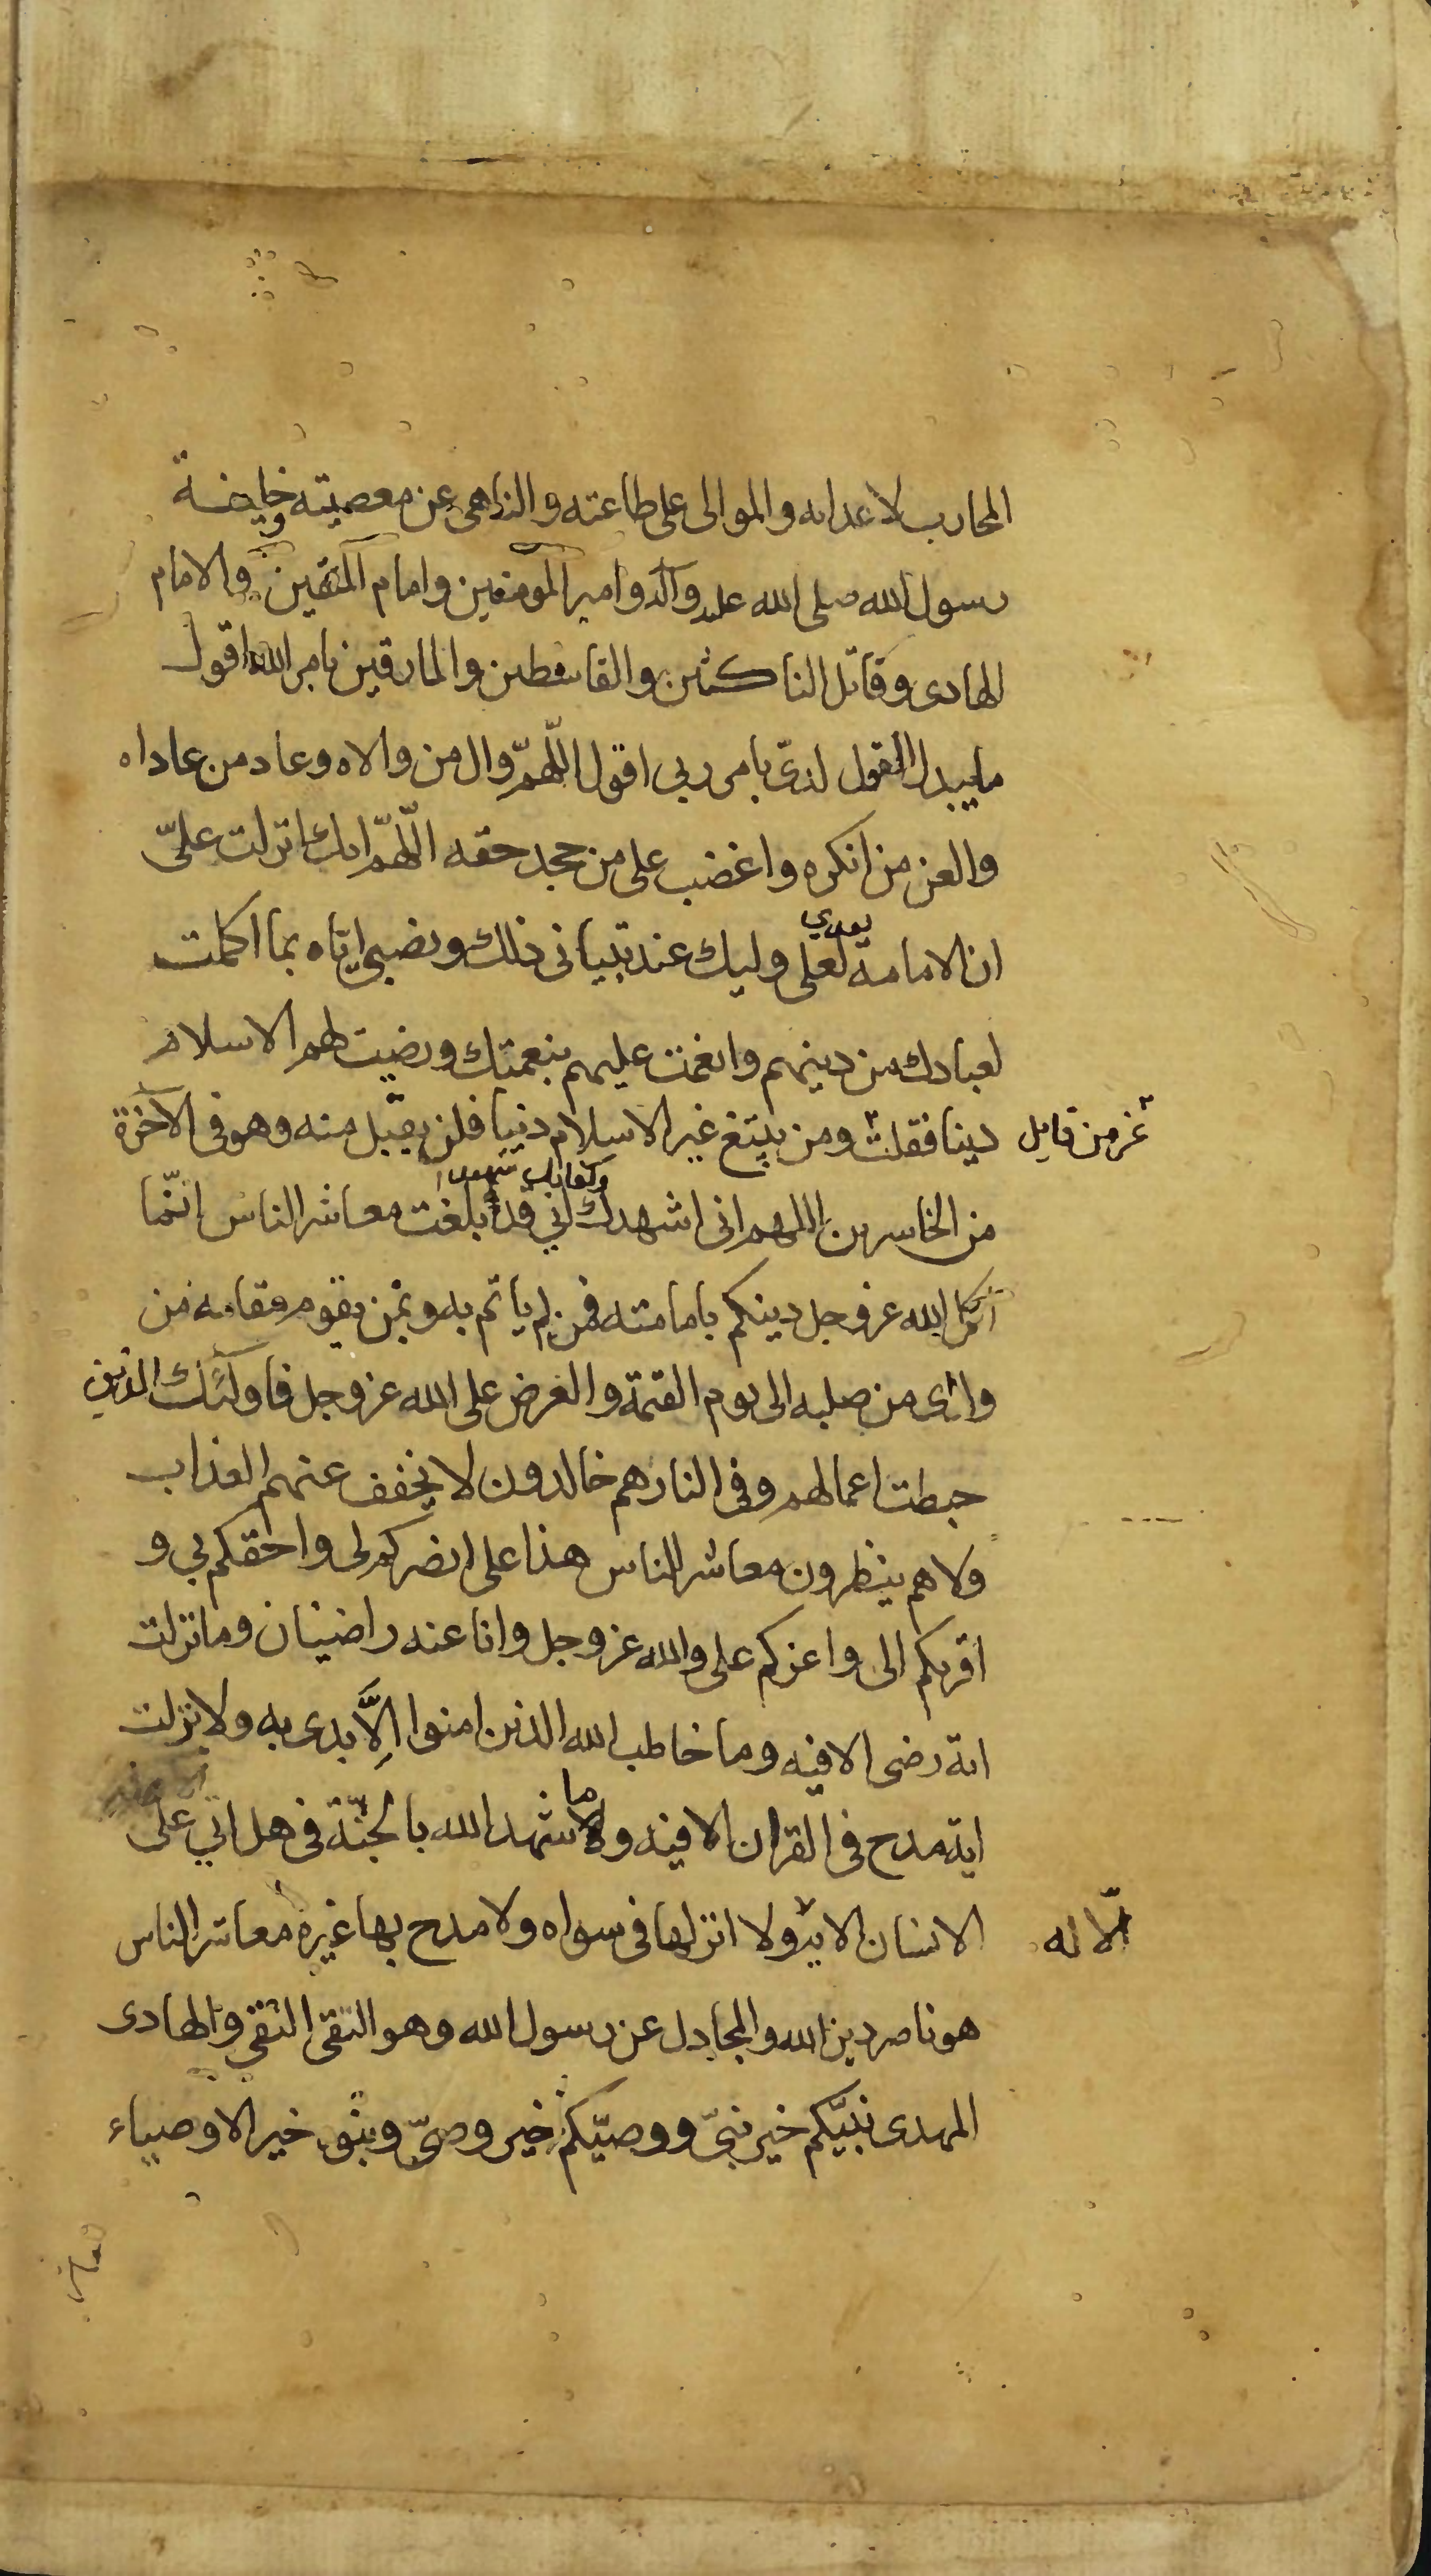 المحارب لاعدائه والموالى على طاعته والناهى عن معصيته وخليفة
رسول الله صلى الله عليه وآله وامير المومنين وامام المتقين والامام
الهادى وقاتل الناكثين والقاسطين والمارقين بامر الله اقول
ما يبدل القول لدىّ بامر ربى اقول اللّهمّ وال من والاه وعاد من عاداه
والعن من انكره واغضب على من جحد حقه اللّهمّ انك انزلت علىّ
بعدي
ان الامامة لعلى وليك عند تبيانى ذلك ونصبى اياه بما اكملت
لعبادك من دينهم وانعمت عليهم بنعمتك ورضيت لهم الاسلام
دينا فقلت ومن يبتغ غير الاسلام دينا فلن يقبل منه وهو فى الآخرة
عز من قايل
وكفا بك شهيدا
من الخاسرين اللهم انى اشهدك اني قد بلغت معاشر الناس انّما
اكمل الله عز وجل دينكم بامامته فمن لم ياتم به وبمن يقوم مقامه من
ولدى من صلبه الى يوم القيمة والعرض على الله عز وجل فاولئك الذين
حبطت اعمالهم وفى النار هم خالدون لا يخفف عنهم العذاب
ولا هم ينظرون معاشر الناس هذا على انصركم لى واحقكم بي و
اقربكم الى واعزكم على والله عز وجل وانا عنه راضيان وما نزلت
اية رضى الا فيه وما خاطب الله الذين امنوا الاّ بدى به ولا نزلت
ما
اية مدح فى القران الا فيه ولا شهد الله بالجنّة فى هل اتي على
الانسان الاية ولا انزلها فى سواه ولا مدح بها غيره معاشر الناس
الّا له
هو ناصر دين الله والمجادل عن رسول الله وهو التقى النقي والهادى
المهدى نبيّكم خير نبىّ ووصيّكم خير وصىّ وبنوه خير الاوصياء